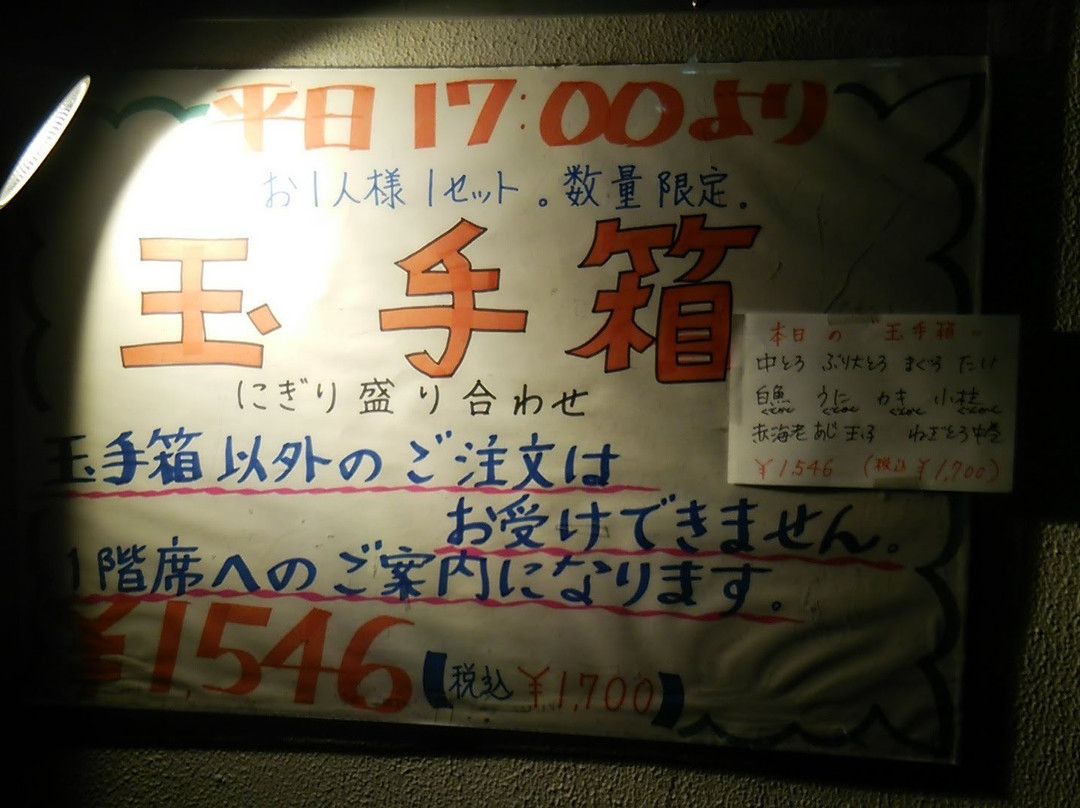 平日17:00より
お1人様1セット。数量限定。
玉手箱
にぎり盛り合わせ
玉手箱以外のご注文は
お受けできません。
1階席へのご案内になります。
¥1,546【税込¥1,700】
本日の"玉手箱"
中とろ ぶり大とろ まぐろ たい
白魚 うに カキ 小柱
ぐんかん ぐんかん ぐんかん ぐんかん
赤海老 あじ 玉子 ねぎとろ中巻
¥1,546 (税込¥1,700)